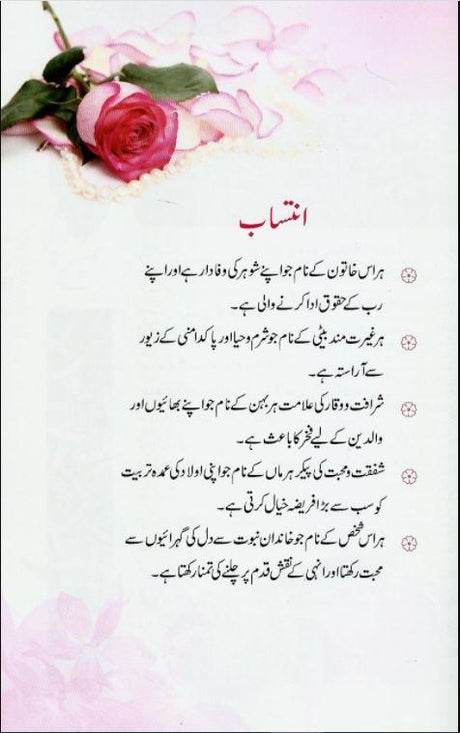 انتساب
ہر اس خاتون کے نام جو اپنے شوہر کی وفادار ہے اور اپنے
رب کے حقوق ادا کرنے والی ہے۔
ہر غیرت مند بیٹی کے نام جو شرم و حیا اور پاکدامنی کے زیور
سے آراستہ ہے۔
شرافت و وقار کی علامت ہر بہن کے نام جو اپنے بھائیوں اور
والدین کے لیے فخر کا باعث ہے۔
شفقت و محبت کی پیکر ہر ماں کے نام جو اپنی اولاد کی عمدہ تربیت
کو سب سے بڑا فریضہ خیال کرتی ہے۔
ہر اس شخص کے نام جو خاندان نبوت سے دل کی گہرائیوں سے
محبت رکھتا اور انہی کے نقش قدم پر چلنے کی تمنا رکھتا ہے۔